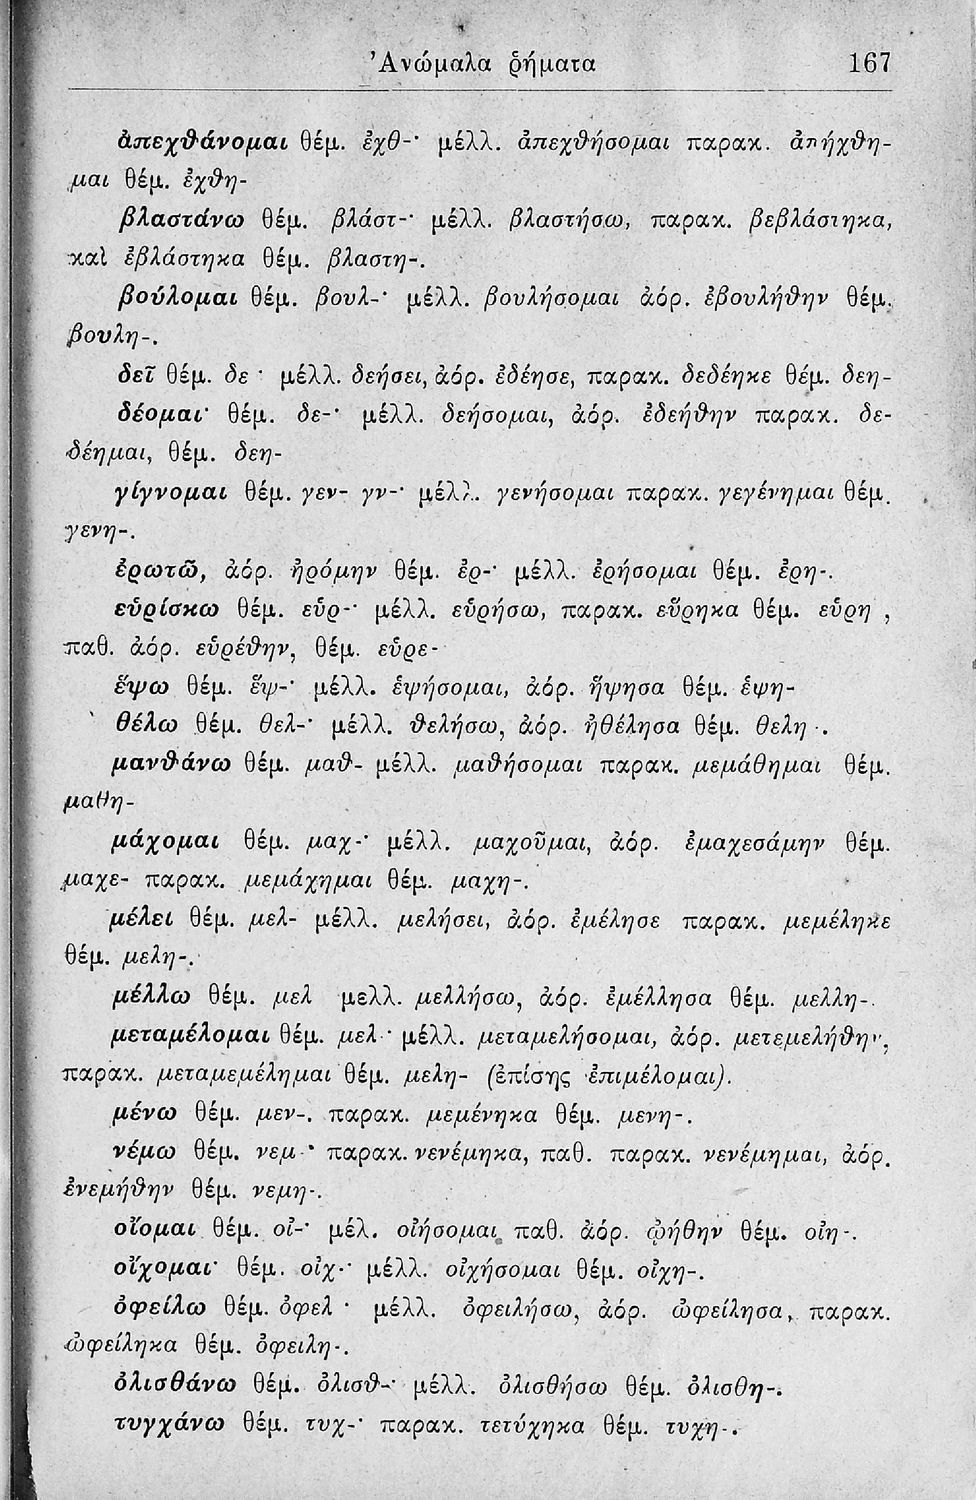 Ἀνώμαλα ῥήματα 167
ἀπεχθάνομαι θέμ. ἐχθ-· μέλλ. ἀπεχθήσομαι παρακ. ἀπήχθη-
μαι θέμ. ἐχθη-
βλαστάνω θέμ. βλάστ-· μέλλ. βλαστήσω, παρακ. βεβλάστηκα,
καὶ ἐβλάστηκα θέμ. βλαστη-.
βούλομαι θέμ. βουλ-· μέλλ. βουλήσομαι ἀόρ. ἐβουλήθην θέμ.
βουλη-.
δεῖ θέμ. δε · μέλλ. δεήσει, ἀόρ. ἐδέησε, παρακ. δεδέηκε θέμ. δεη-
δέομαι· θέμ. δε-· μέλλ. δεήσομαι, ἀόρ. ἐδεήθην παρακ. δε-
δέημαι, θέμ. δεη-
γίγνομαι θέμ. γεν- γν-· μέλλ. γενήσομαι παρακ. γεγένημαι θέμ.
γενη-.
ἐρωτῶ, ἀόρ. ἠρόμην θέμ. ἐρ-· μέλλ. ἐρήσομαι θέμ. ἐρη-.
εὑρίσκω θέμ. εὑρ-· μέλλ. εὑρήσω, παρακ. εὕρηκα θέμ. εὑρη ,
παθ. ἀόρ. εὑρέθην, θέμ. εὑρε-
ἕψω θέμ. ἕψ-· μέλλ. ἑψήσομαι, ἀόρ. ἥψησα θέμ. ἑψη-
θέλω θέμ. θελ-· μέλλ. θελήσω, ἀόρ. ἠθέλησα θέμ. θελη-.
μανθάνω θέμ. μαθ- μέλλ. μαθήσομαι παρακ. μεμάθημαι θέμ.
μαθη-
μάχομαι θέμ. μαχ-· μέλλ. μαχοῦμαι, ἀόρ. ἐμαχεσάμην θέμ.
μαχε- παρακ. μεμάχημαι θέμ. μαχη-.
μέλει θέμ. μελ- μέλλ. μελήσει, ἀόρ. ἐμέλησε παρακ. μεμέληκε
θέμ. μελη-.
μέλλω θέμ. μελ μελλ. μελλήσω, ἀόρ. ἐμέλλησα θέμ. μελλη-.
μεταμέλομαι θέμ. μελ · μέλλ. μεταμελήσομαι, ἀόρ. μετεμελήθην,
παρακ. μεταμεμέλημαι θέμ. μελη- (ἐπίσης ἐπιμέλομαι).
μένω θέμ. μεν-. παρακ. μεμένηκα θέμ. μενη-.
νέμω θέμ. νεμ-· παρακ. νενέμηκα, παθ. παρακ. νενέμημαι, ἀόρ.
ἐνεμήθην θέμ. νεμη-.
οἴομαι θέμ. οἰ-· μέλ. οἰήσομαι, παθ. ἀόρ. ᾠήθην θέμ. οἰη-.
οἴχομαι· θέμ. οἰχ-· μέλλ. οἰχήσομαι θέμ. οἰχη-.
ὀφείλω θέμ. ὀφελ · μέλλ. ὀφειλήσω, ἀόρ. ὠφείλησα, παρακ.
ὠφείληκα θέμ. ὀφειλη-.
ὀλισθάνω θέμ. ὀλισθ-· μέλλ. ὀλισθήσω θέμ. ὀλισθη-.
τυγχάνω θέμ. τυχ-· παρακ. τετύχηκα θέμ. τυχη-.